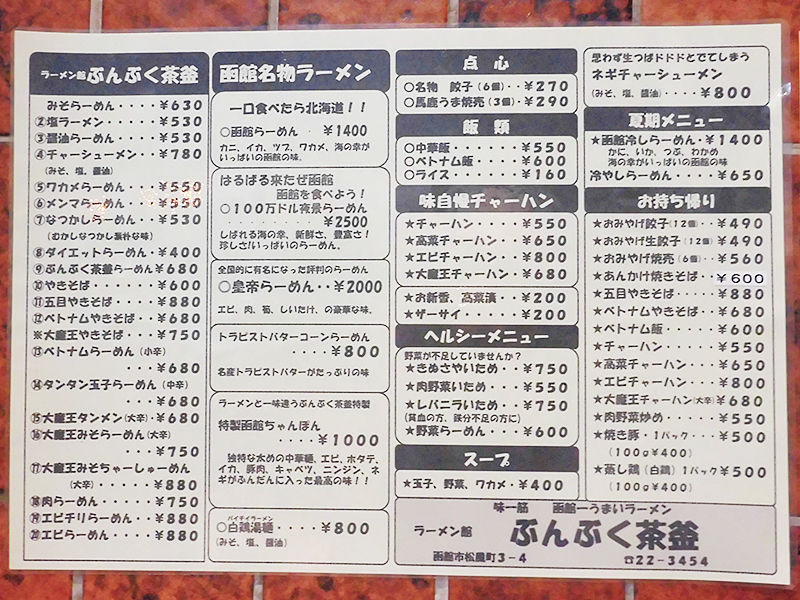 ラーメン館 ぶんぶく茶釜
みそらーめん・・・・¥630
②塩ラーメン・・・・・¥530
③醤油らーめん・・・・¥530
④チャーシューメン・・¥780
(みそ、塩、醤油)
⑤ワカメらーめん・・・¥550
⑥メンマらーめん・・・¥550
⑦なつかしらーめん・・¥530
(むかしなつかし素朴な味)
⑧ダイエットらーめん・¥400
⑨ぶんぶく茶釜らーめん¥680
⑩やきそば・・・・・・¥600
⑪五目やきそば・・・・¥880
⑫ベトナムやきそば・・¥680
※大魔王やきそば・・・¥750
⑬ベトナムらーめん(小辛)
・・・・・・・¥680
⑭タンタン玉子らーめん(中辛)
・・・・・・・¥680
⑮大魔王タンメン(大辛)・¥680
⑯大魔王みそらーめん(大辛)
・・・¥750
⑰大魔王みそちゃーしゅーめん
(大辛)・・・・¥880
⑱肉らーめん・・・・・¥750
⑲エビチリらーめん・・¥880
⑳エビらーめん・・・・¥880
函館名物ラーメン
一口食べたら北海道！！
○函館らーめん ・ ¥1400
カニ、イカ、ツブ、ワカメ、海の幸が
いっぱいの函館の味。
はるばる来たぜ函館
函館を食べよう！
○100万ドル夜景らーめん
・・・・・・・・¥2500
しばれる海の幸、新鮮さ、豊富さ！
珍しさいっぱいのらーめん。
全国的に有名になった評判のらーめん
○皇帝らーめん・・¥2000
エビ、肉、筍、しいたけ、の豪華な味。
トラピストバターコーンらーめん
・・・・¥800
名産トラピストバターがたっぷりの味
ラーメンと一味違うぶんぶく茶釜特製
特製函館ちゃんぽん
・・・・¥1000
独特な太めの中華麺、エビ、ホタテ、
イカ、豚肉、キャベツ、ニンジン、ネ
ギがふんだんに入った最高の味！！
パイチイラーメン
○白鶏湯麺・・・・¥800
(みそ、塩、醤油)
点心
○名物 餃子(6個)・・¥270
○馬鹿うま焼売(3個)・¥290
飯類
○中華飯・・・・・・¥550
○ベトナム飯・・・・¥600
○ライス・・・・・・¥160
味自慢チャーハン
★チャーハン・・・・¥550
★高菜チャーハン・・¥650
★エビチャーハン・・¥800
★大魔王チャーハン・¥680
★お新香、高菜漬・・¥200
★ザーサイ・・・・・¥200
ヘルシーメニュー
野菜が不足していませんか？
★きぬさやいため・・¥750
★肉野菜いため・・・¥550
★レバニラいため・・¥750
(貧血の方、鉄分不足の方に)
★野菜らーめん・・・¥600
スープ
★玉子、野菜、ワカメ・¥400
思わず生つばドドドとでてしまう
ネギチャーシューメン
(みそ、塩、醤油)・・・¥800
夏期メニュー
★函館冷しらーめん・¥1400
かに、いか、つぶ、わかめ
海の幸がいっぱいの函館の味
冷やしらーめん・・・¥650
お持ち帰り
★おみやげ餃子(12個)・・¥490
★おみやげ生餃子(12個)・¥460
★おみやげ焼売(6個)・・¥560
★あんかけ焼きそば・・¥600
★五目やきそば・・・・¥880
★ベトナムやきそば・・¥680
★ベトナム飯・・・・・¥600
★チャーハン・・・・・¥550
★高菜チャーハン・・・¥650
★エビチャーハン・・・¥800
★大魔王チャーハン(大辛)¥680
★肉野菜炒め・・・・・¥550
★焼き豚・1パック・・¥500
(100g¥400)
★蒸し鶏(白鶏)1パック¥500
(100g¥400)
味一筋 函館一うまいラーメン
ラーメン館 ぶんぶく茶釜
函館市松風町3-4 ☎22-3454